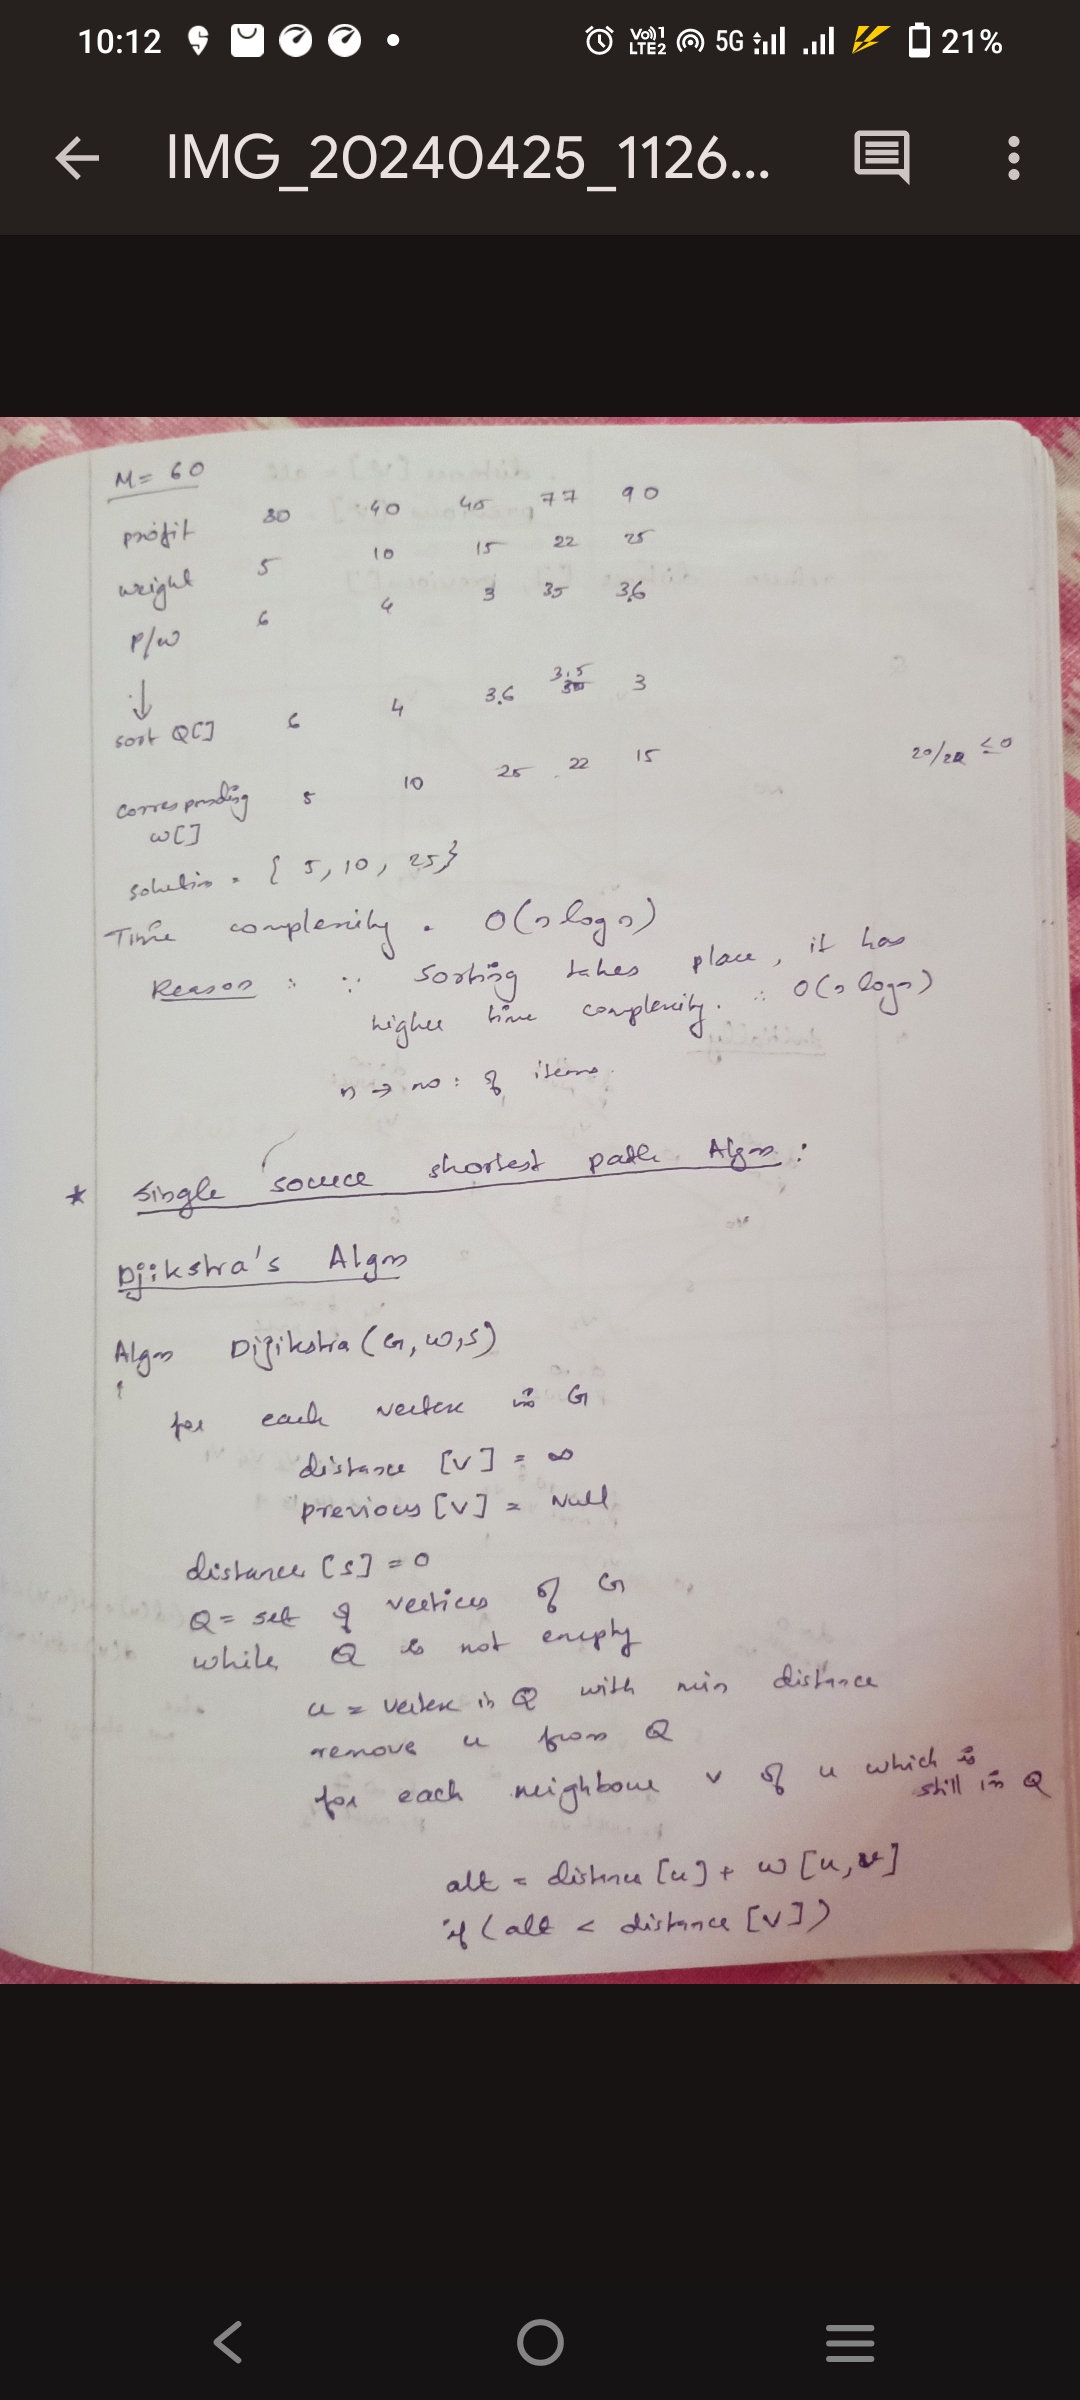 10:12 Vo)) 1 LTE2 5G 21%
IMG_20240425_1126...
M= 60
profit 30 40 45 77 90
weight 5 10 15 22 25
P/w 6 4 3 35 3.6
↓
sort Q[] 6 4 3.6 3.5 3
corresponding 5 10 25 22 15 20/22 ≤0
w[]
solution = { 5, 10, 25}
Time complexity = O(n log n)
Reason : ∵ sorting takes place, it has
higher time complexity. ∴ O(n logn)
n → no: of items.
* Single source shortest path Algm :
Djikstra's Algm
Algm Dijikstra (G, w, s)
for each vertex in G
distance [v] = ∞
previous [v] = Null
distance [s] = 0
Q = set of vertices of G
while Q is not empty
u = vertex in Q with min distance
remove u from Q
for each neighbour v of u which is
still in Q
alt = distnce [u] + w [u, v]
if (alt < distance [v])